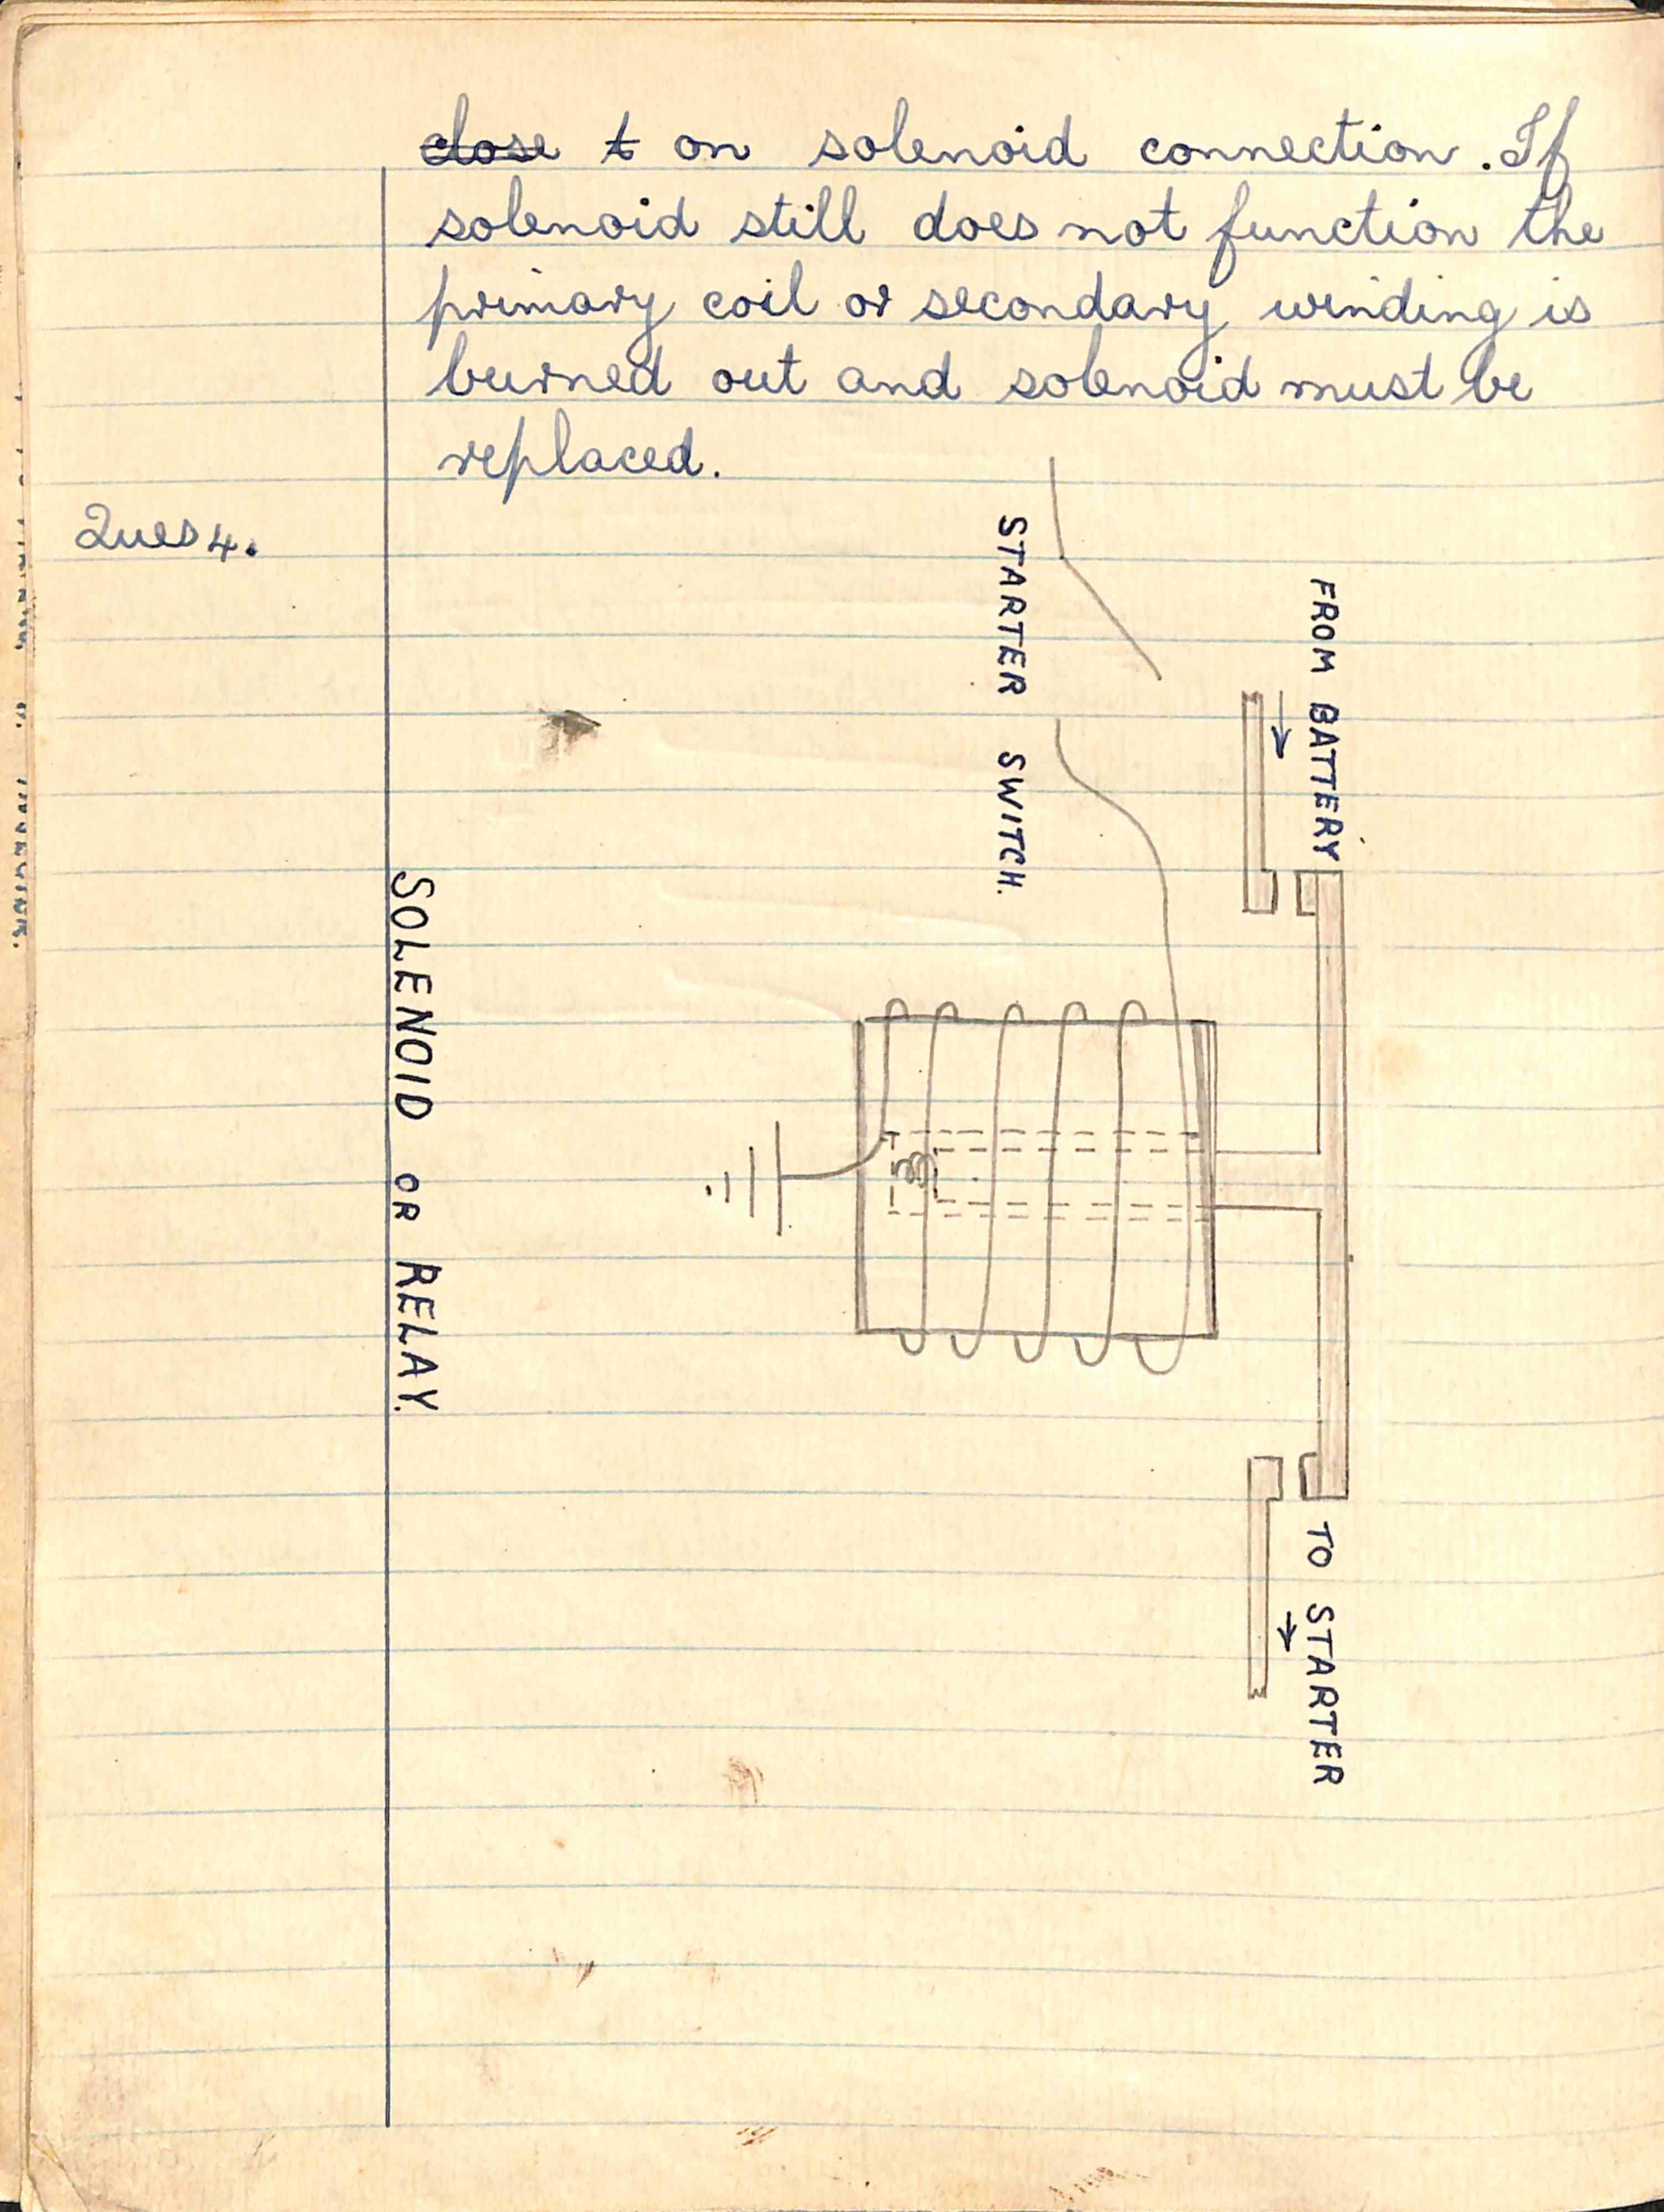 close t on solenoid connection. If
solenoid still does not function the
primary coil or secondary winding is
burned out and solenoid must be
replaced.
Ques 4.
FROM BATTERY
TO STARTER
STARTER SWITCH.
SOLENOID OR RELAY.